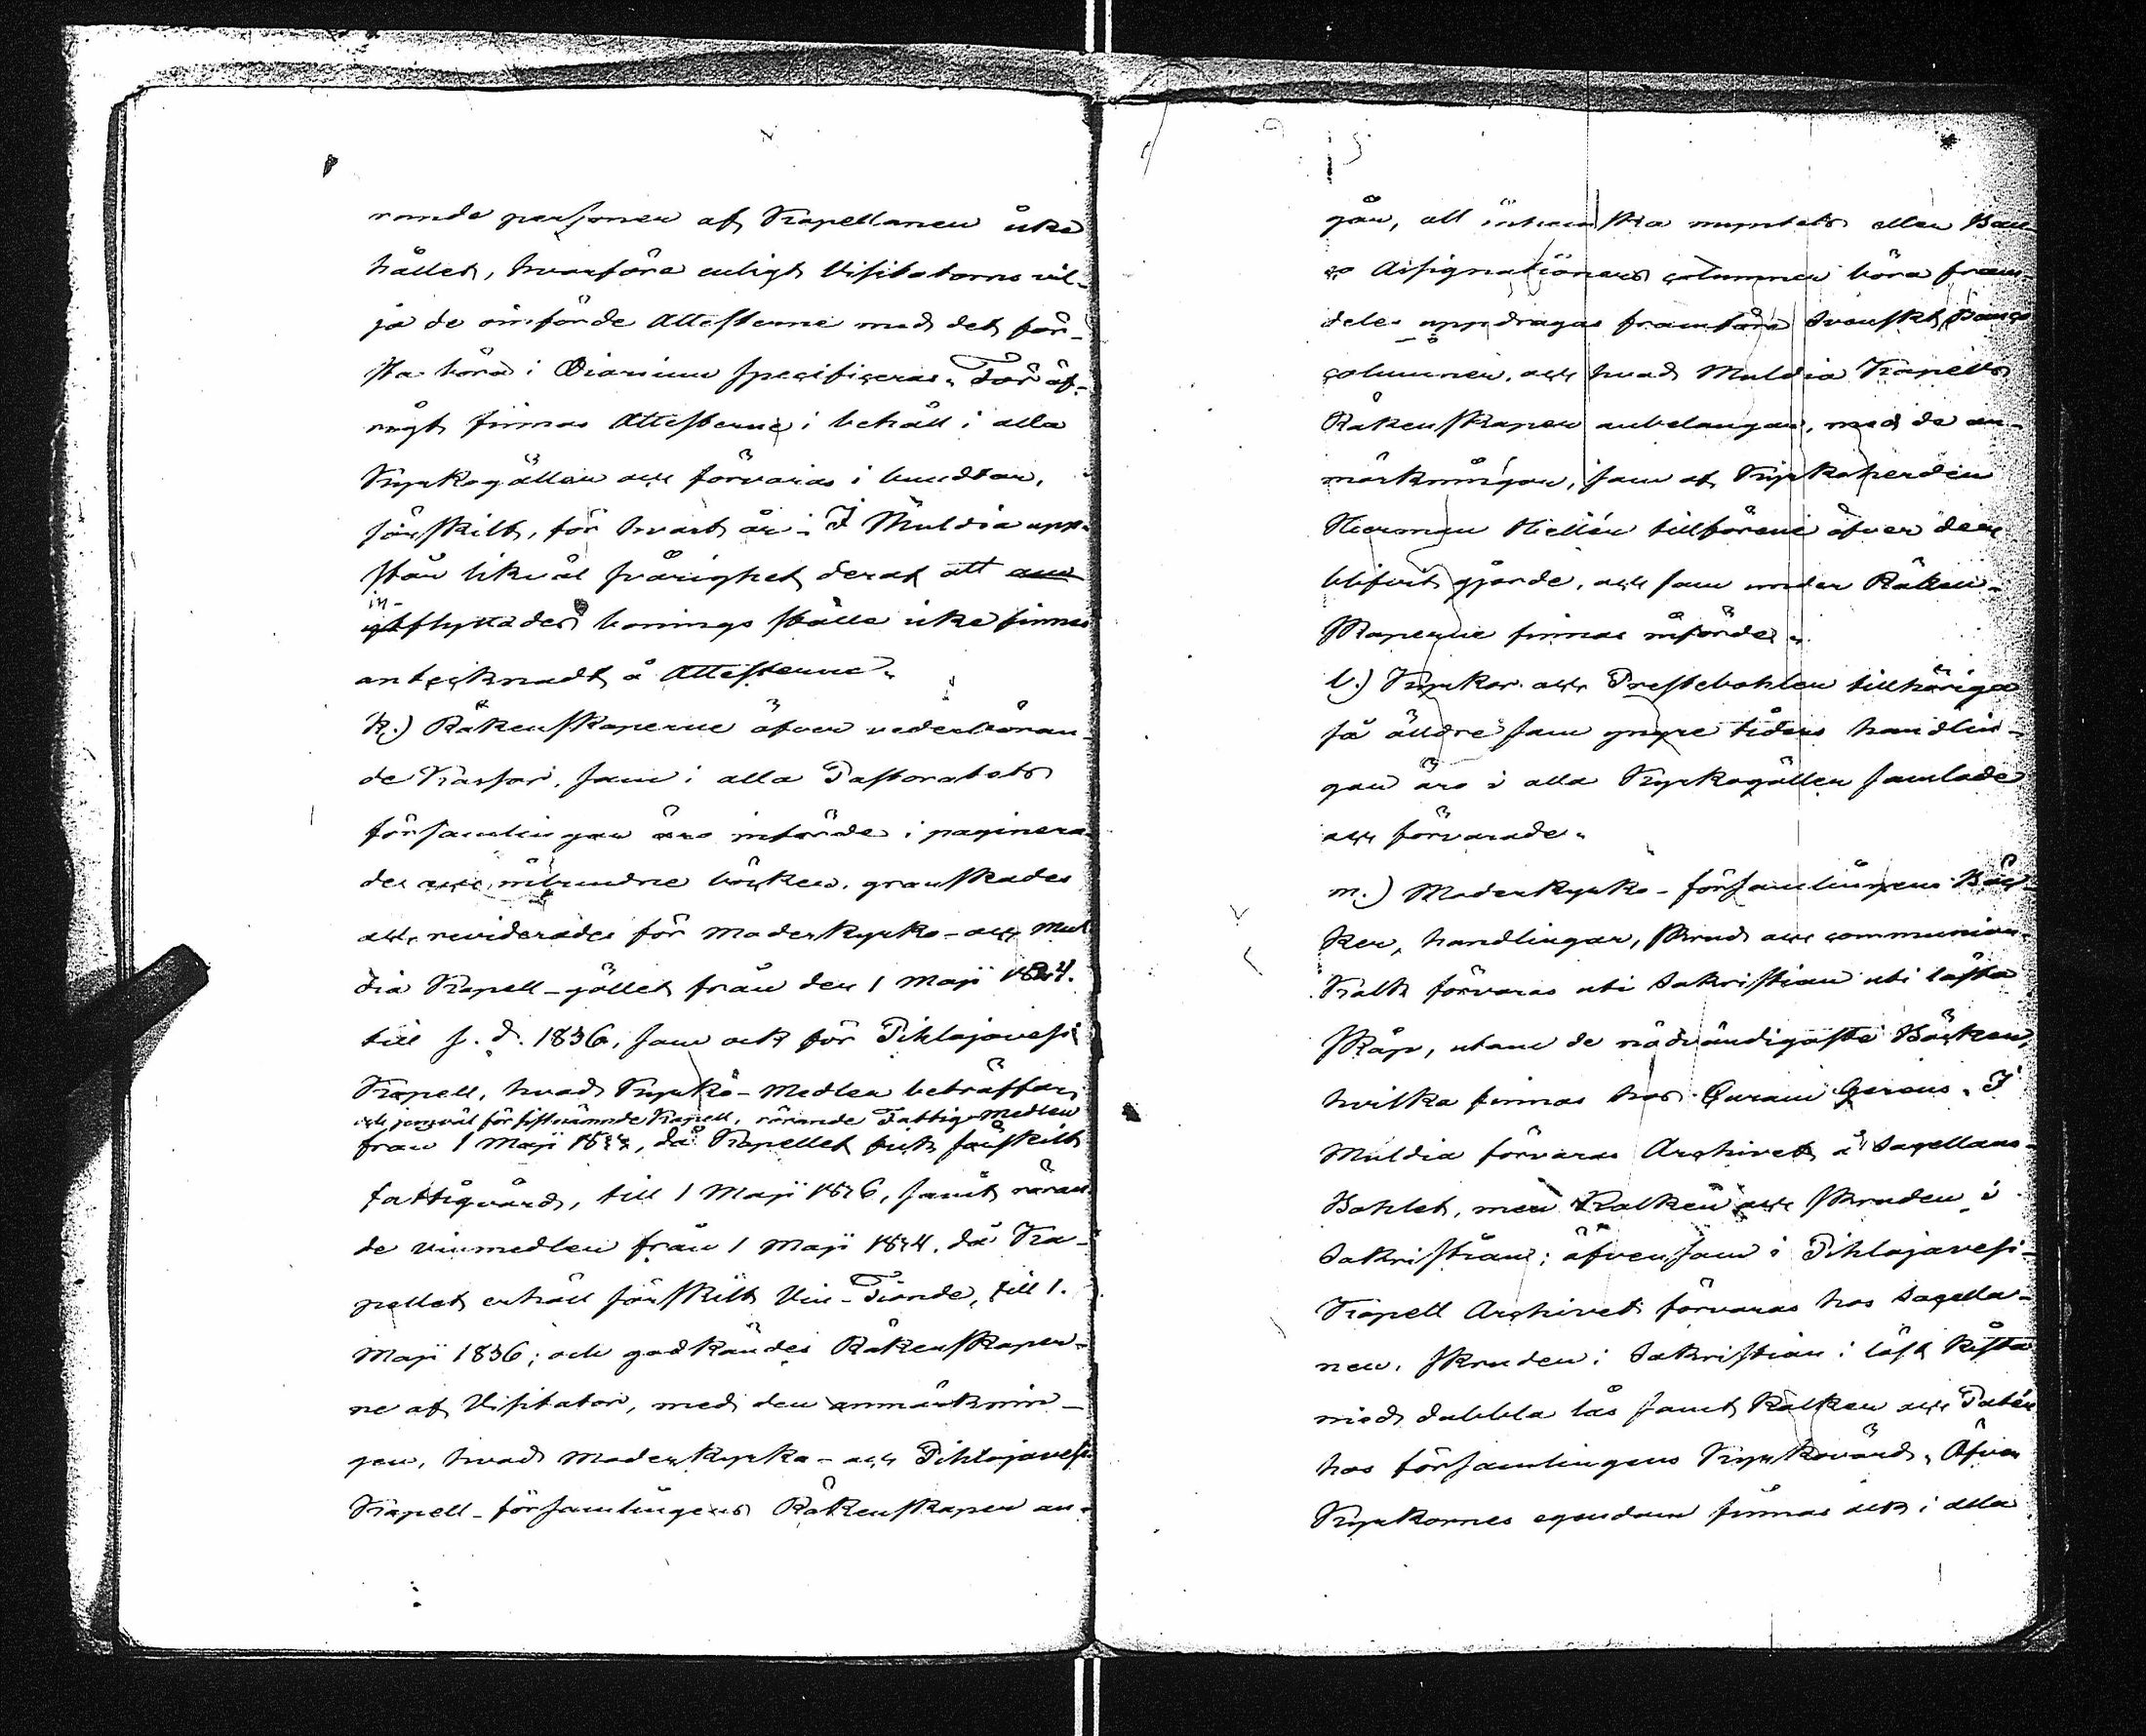 rande personer af Kapellanen icke
hållet, hvarföre enligt Visitatorns vil-
ja de införde Attesterne med det för-
sta böra i Diarium specificeras. För öf-
rigt finnas Attesterne i behåll i alla
Kyrkogällen och förvaras i bundtar,
särskilt, för hvart år. I Muldia upp-
står likväl svårighet deraf att
in-
flyttades bonings ställe icke finnes
antecknadt å Attesterne.
k.) Räkenskaperne öfver vederböran-
de Kassor, som i alla Pastoratets
församlingar äro införde i paginera-
de och inbundne böcker, granskades
och reviderades för Moderkyrko- och Mul
dia Kapell-gället från den 1 Maji 1824.
till s. d. 1836, som ock för Pihlajavesi
Kapell, hvad Kyrko-Medlen beträffar,
och jemväl för sistnämnde Kapell, rörande Fattig-Medlen
från 1 Maji, då Kapellet fick särskilt
fattigvård, till 1 Maji 1836, samt röran
de vinmedlen från 1 Maji 1834, då Ka-
pellet erhöll särskilt Vin-Tionde, till 1.
Maji 1836; och godkändes Räkenskaper-
ne af Visitator, med den anmärknin-
gen, hvad Moderkyrko- och Pihlajavesi
Kapell-församlingens Räkenskaper an-
går, att inhemska myntets eller Ban-
co Assignationers columner böra fram-
deles uppdragas framföre Svenskt Banco
columner, och hvad Muldia Kapells
Räkenskaper anbelangar, med de an-
märkningar, som af Kyrkoherden
Herman Hellén tillförene öfver dem
blifvit gjorde, och som under Räken-
skaperne finnas införde.
l.) Kyrkor och Prestebohlen tillhöriga
så äldre som yngre tiders handlin-
gar äro i alla Kyrkogällen samlade
och förvarade.
m.) Moderkyrko-församlingens Böc-
ker, handlingar, skrud och communion-
Kalk förvaras uti Sakristian uti låsta
skåp, utom de nödvändigaste Böcker,
hvilka finnas hos Curam Gerens. I
Muldia förvaras Archivet å Sacellans-
Bohlet, men Kalken och skruden i
Sakristian; äfvensom i Pihlajavesi-
Kapell Archivet förvaras hos Sacella-
nen, skruden i Sakristian i låst Kista
med dubbla lås samt Kalken och Patén
hos församlingens Kyrkovärd. Öfver
Kyrkornes egendom finnas ock i alla